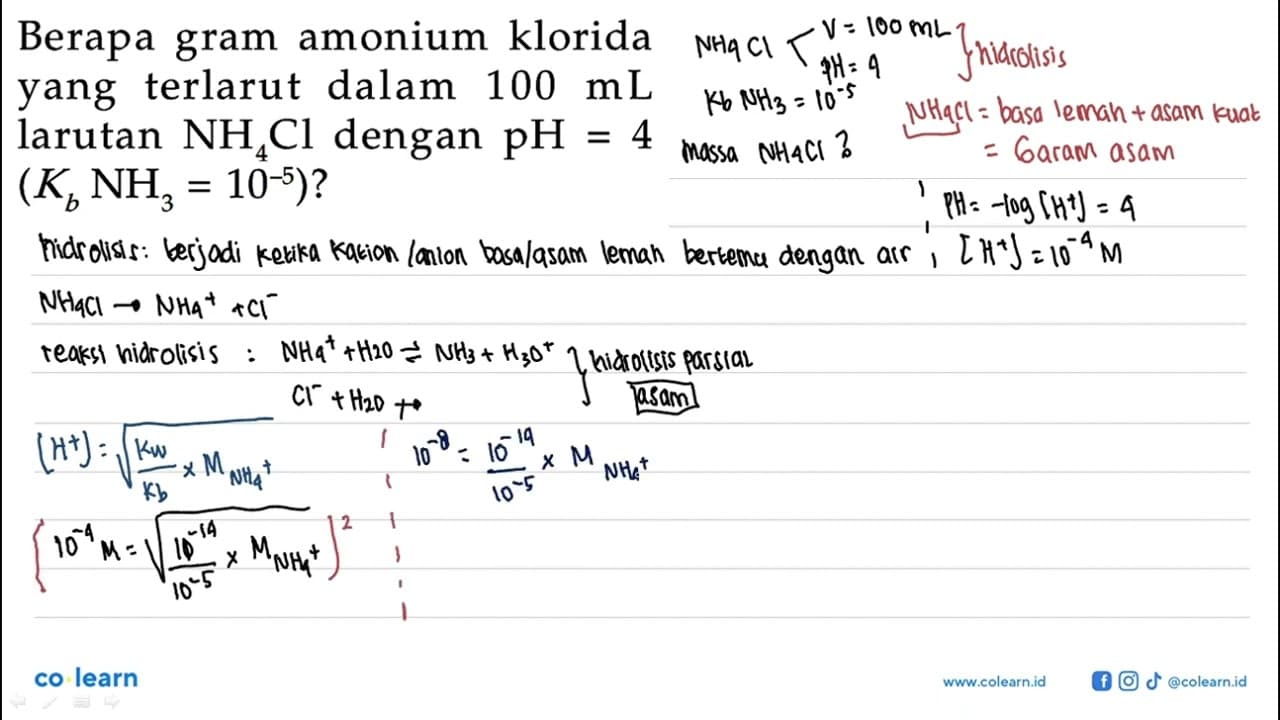 Berapa gram amonium klorida
yang terlarut dalam 100 mL
larutan NH₄Cl dengan pH = 4
(K_b NH₃ = 10⁻⁵)?
NH4Cl < V = 100 mL
pH = 4
} hidrolisis
Kb NH3 = 10⁻⁵
massa NH4Cl ?
NH4Cl = basa lemah + asam kuat
= Garam asam
PH = -log [H⁺] = 4
[H⁺] = 10⁻⁴ M
hidrolisis: terjadi ketika kation/anion basa/asam lemah bertemu dengan air
NH4Cl → NH4⁺ + Cl⁻
reaksi hidrolisis : NH4⁺ + H2O ⇌ NH3 + H3O⁺
Cl⁻ + H2O ↛
} hidrolisis parsial
asam
[H⁺] = √(Kw/Kb × M NH4⁺)
(10⁻⁴ M = √(10⁻¹⁴/10⁻⁵ × M NH4⁺))²
10⁻⁸ = 10⁻¹⁴/10⁻⁵ × M NH4⁺
co·learn
www.colearn.id
@colearn.id